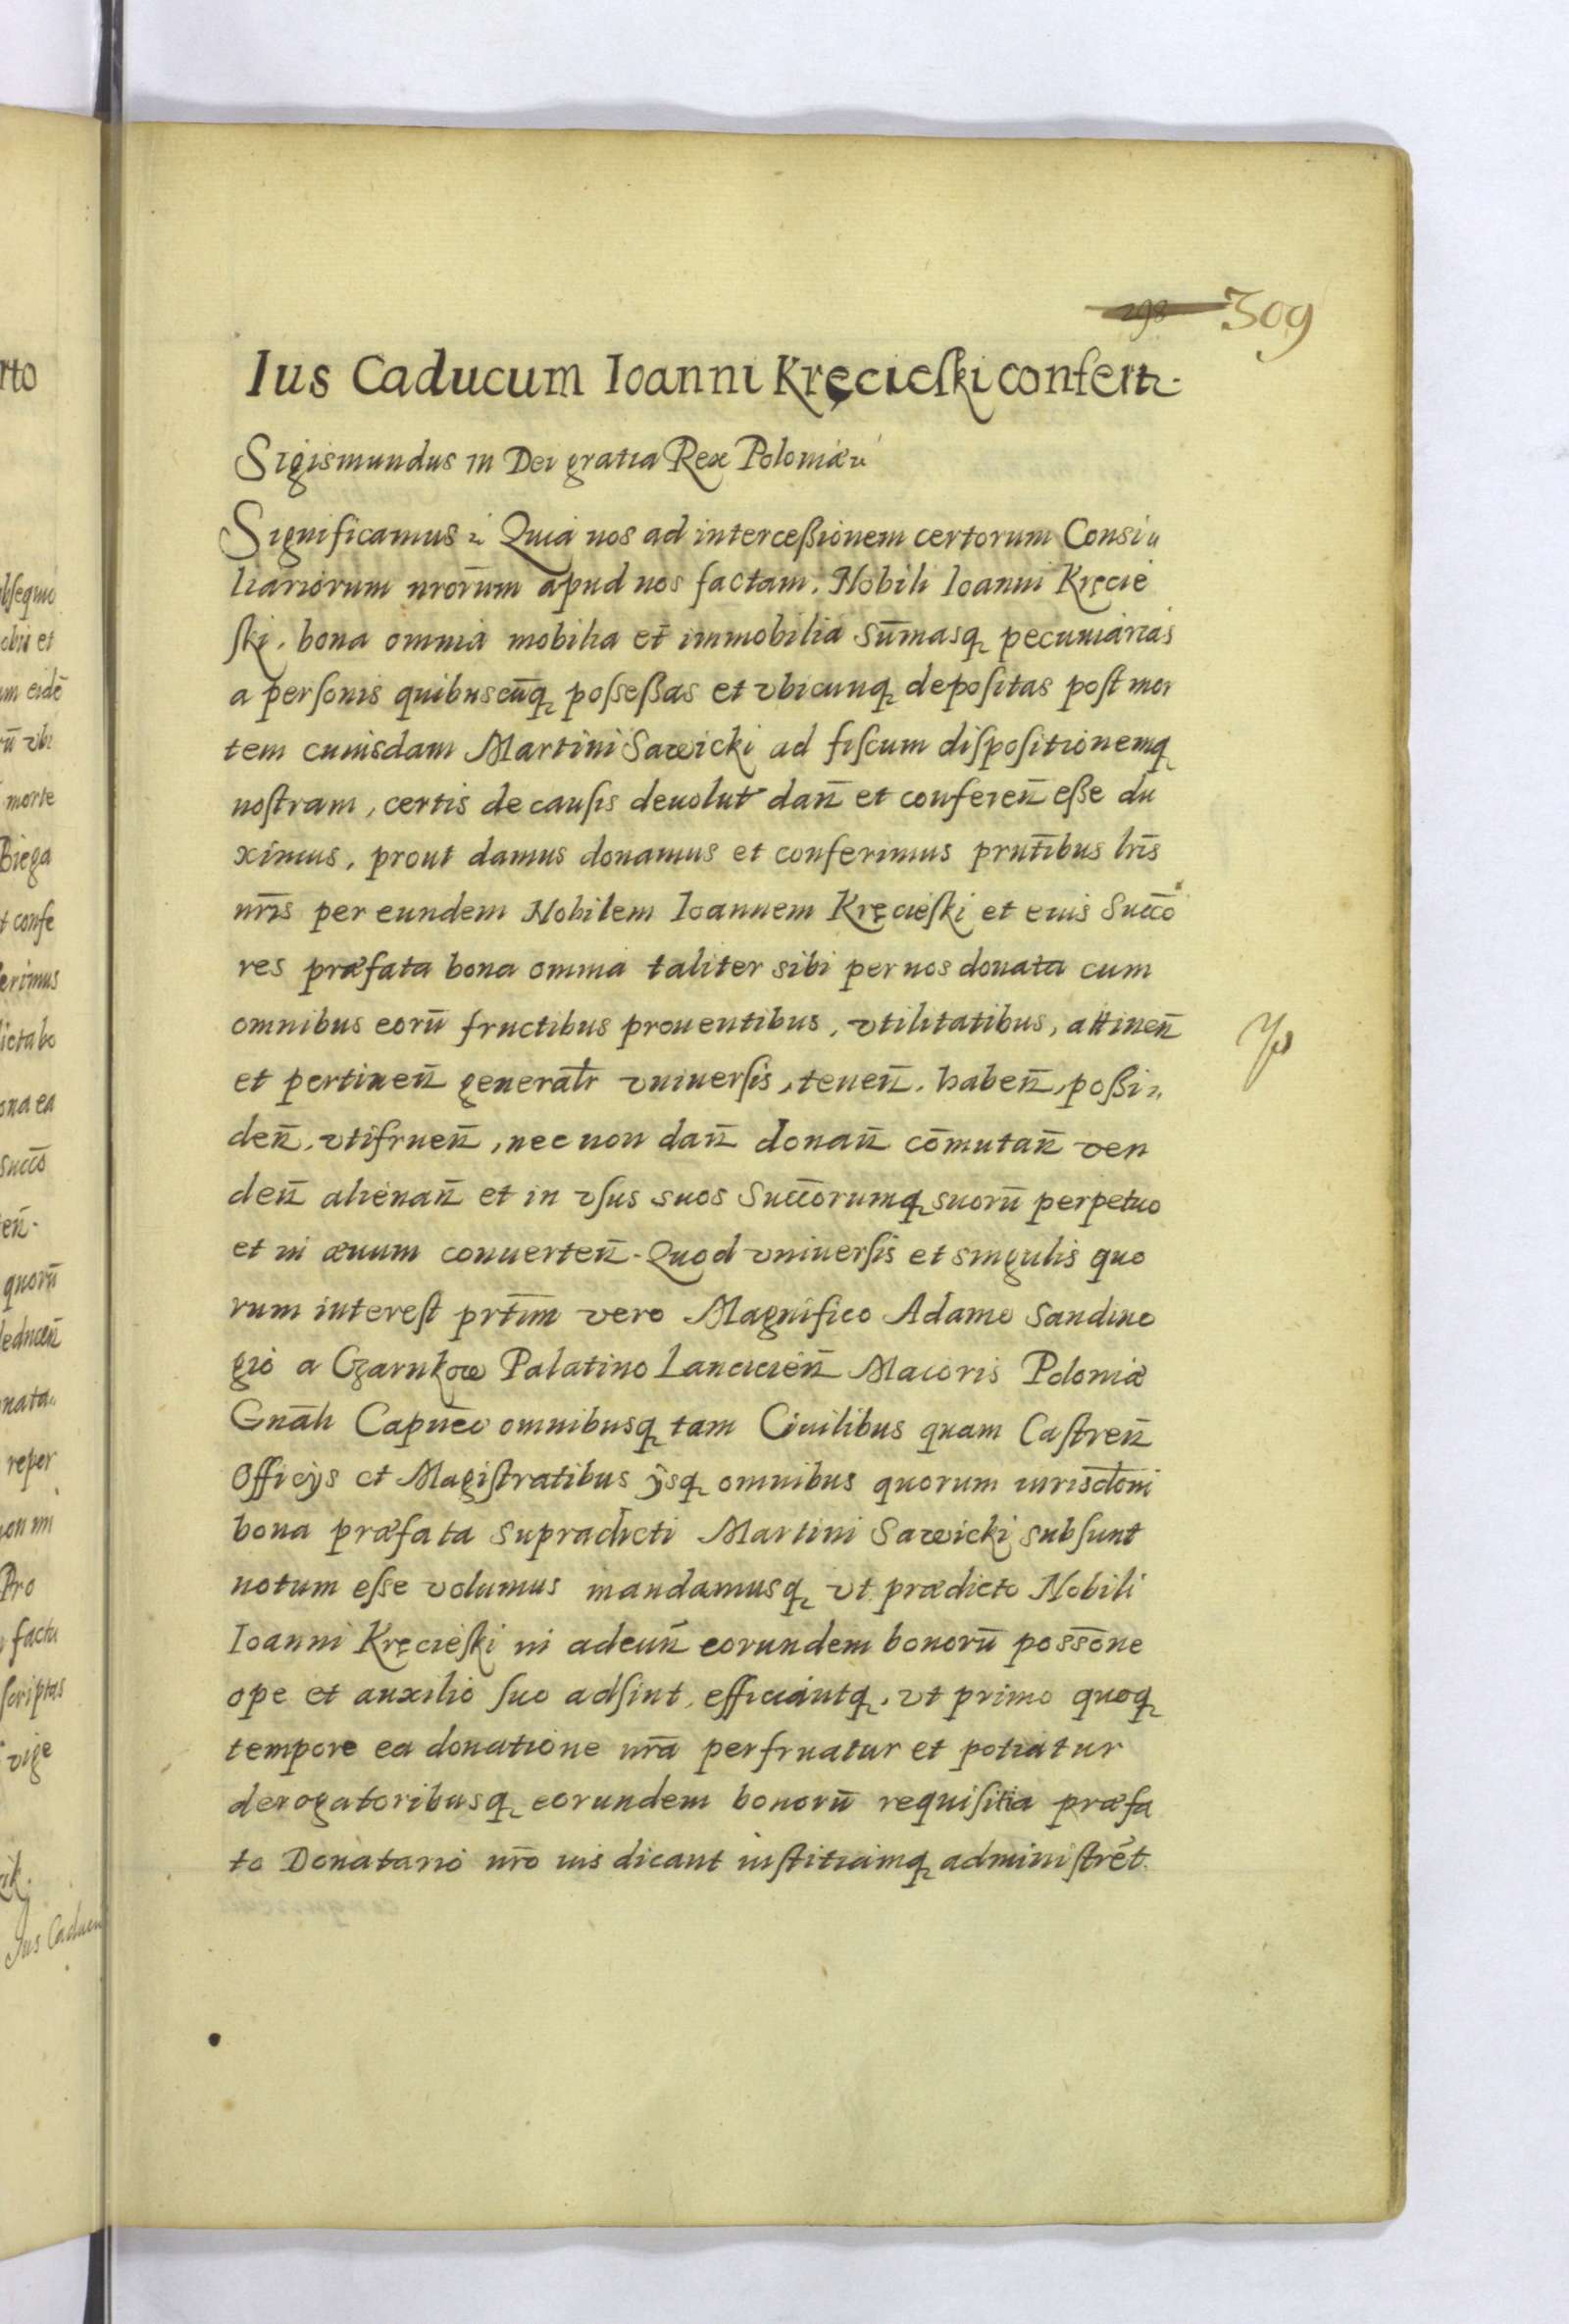 298 309
Ius Caducum Ioanni Kręcieſki confertr.
Sigismundus III Dei gratia Rex Poloniæ
Significamus Quia nos ad interceßionem certorum Consi
liariorum nrorum apud nos factam. Nobili Ioanni Kręcie
ſki. bona omnia mobilia et immobilia sūmasq pecuniarias
a perſonis quibuscūq poſseßas et vbicunq depoſitas poſt mor
tem cuiusdam Martini Sawicki ad fiſcum diſpoſitionemq
noſtram, certis de cauſis deuolut dan̄ et conferen̄ eße du
ximus, prout damus donamus et conferimus prntibus lris
nris per eundem Nobilem Ioannem Kręcieſki et eius Succo
res præfata bona omnia taliter sibi per nos donata cum
omnibus eorū fructibus prouentibus, vtilitatibus, attinen̄
et pertinen̄ generalr vniuerſis, tenen̄. haben̄, poßi
den̄. vtifruen̄, nec non dan̄ donan̄ cōmutan̄ ven
den̄ alienan̄ et in vſus suos Succorumq suorū perpetuo
et in æuum conuerten̄. Quod vniuerſis et singulis quo
rum intereſt prtim vero Magnifico Adamo Sandiuo
gio a Czarnkow Palatino Lancicien̄ Maioris Poloniæ
Gnāli Capneo omnibusq tam Ciuilibus quam Caſtren̄
Officÿs et Magiſtratibus ÿsq omnibus quorum iurisdtoni
bona præfata supradicti Martini Sawicki subſunt
notum eſse volumus mandamusq vt prædicto Nobili
Ioanni Kręcieſki in adeun̄ eorundem bonorū possōne
ope et auxilio ſuo adſint, efficiantq. vt primo quoq
tempore ea donatione nra perfruatur et potiatur
derogatoribusq eorundem bonorū requiſitia præfa
to Donatario nro ius dicant iuſtitiamq adminiſtrēt.